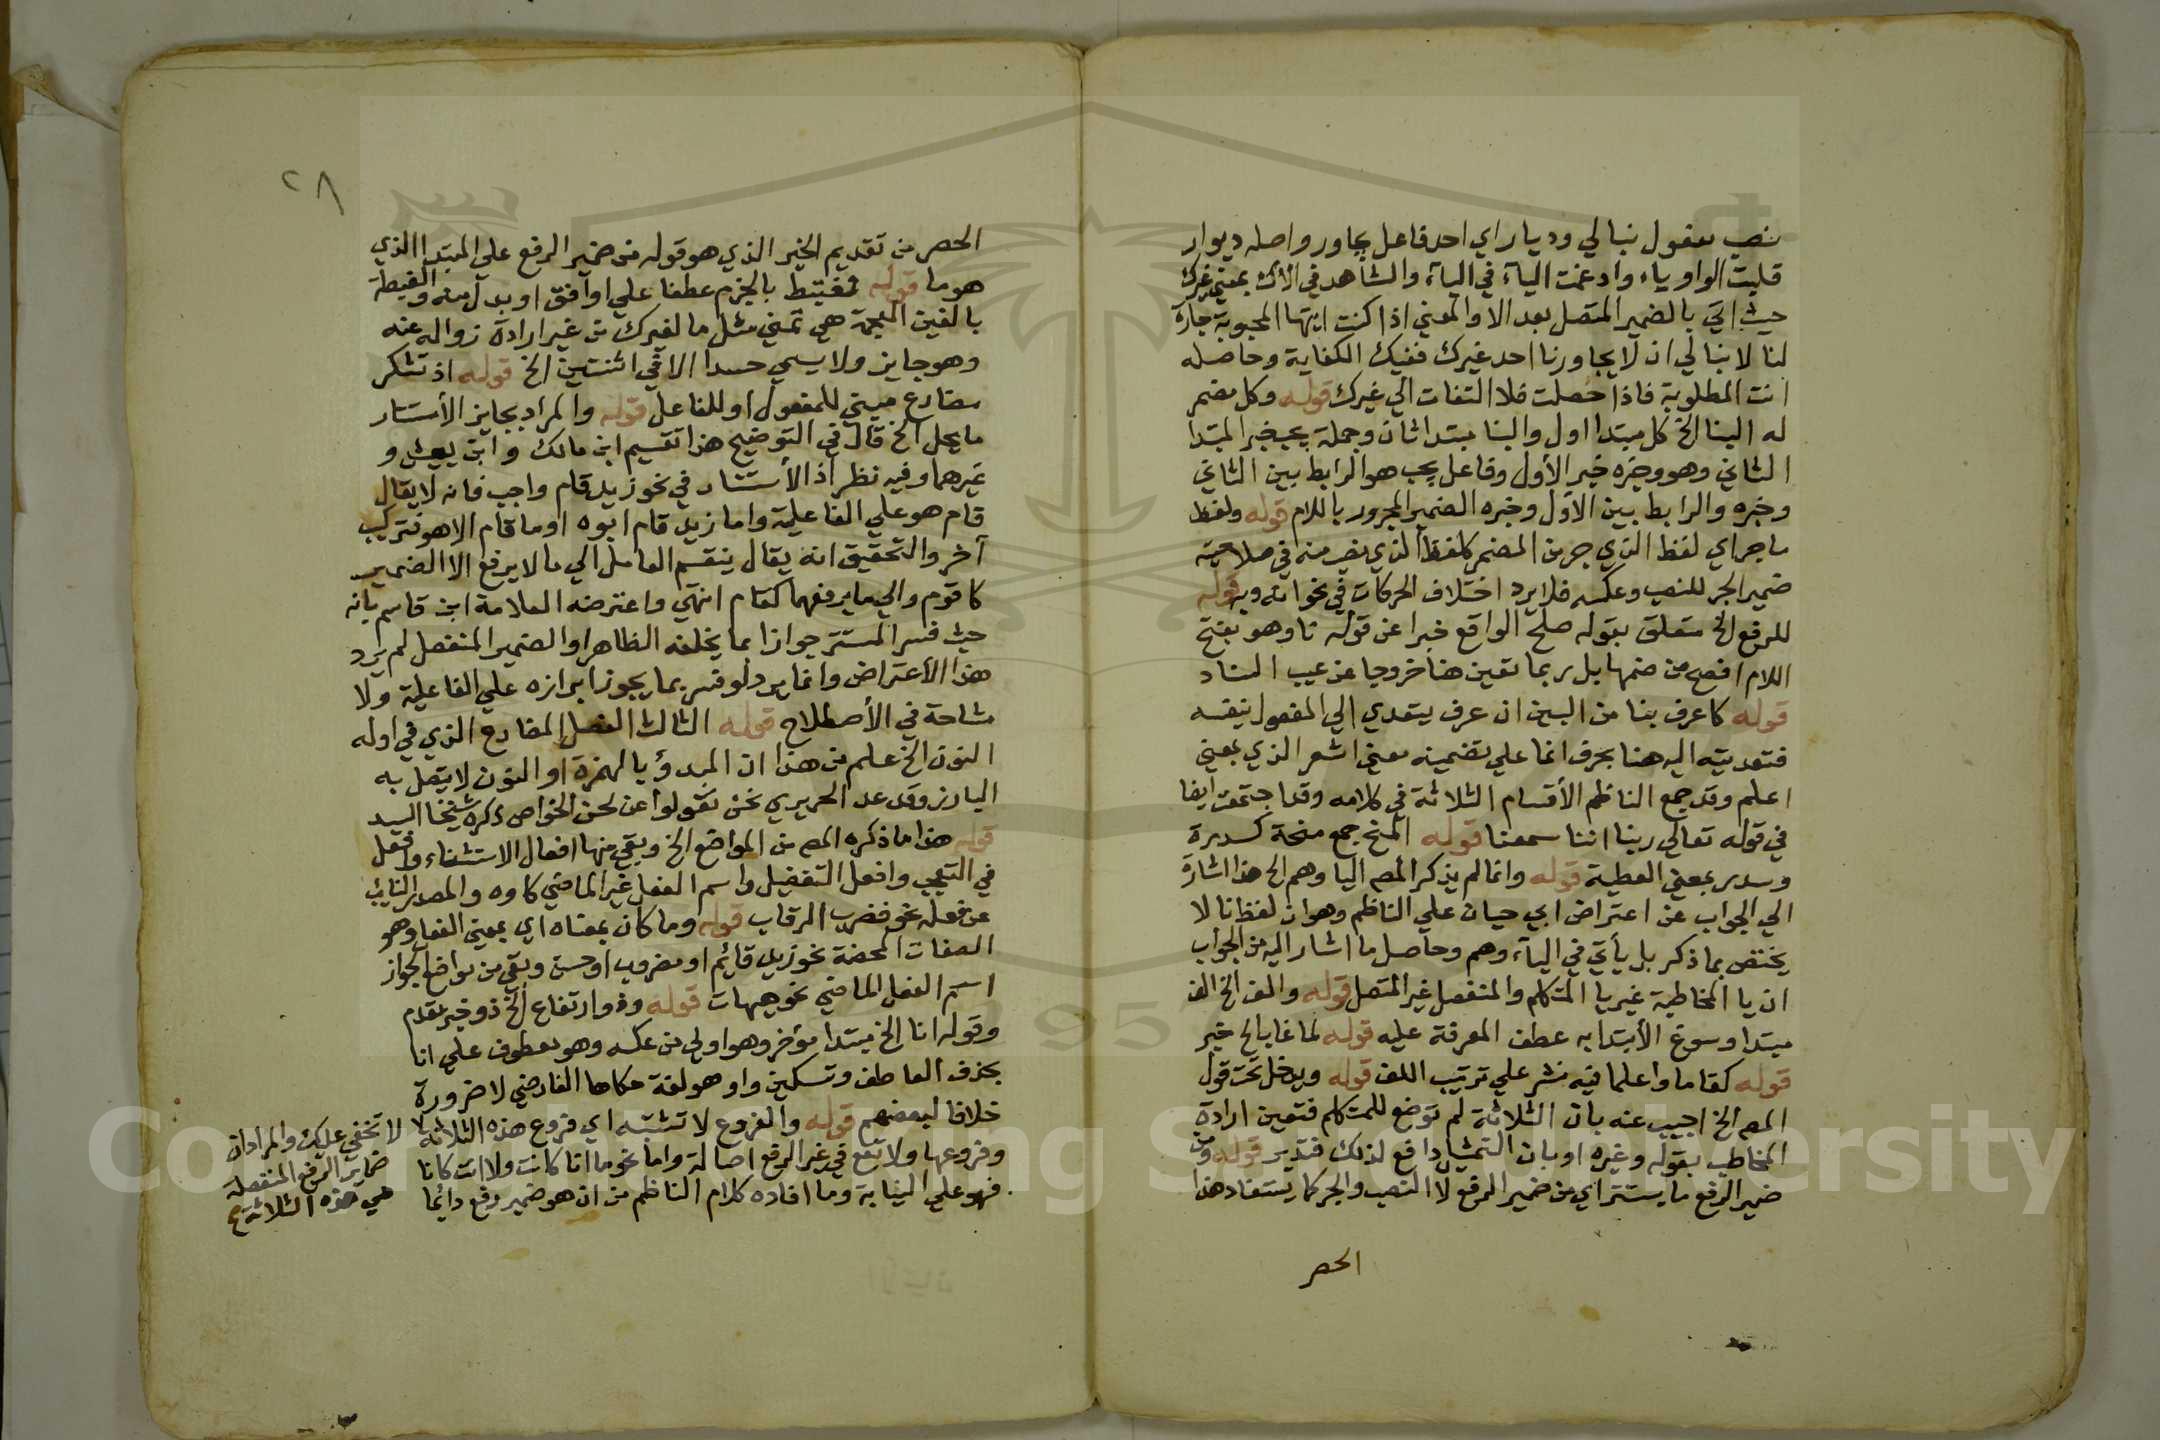 نصب مفعول نبالي وديار اي احد فاعل يجاور واصله ديوار
قلبت الواو ياء وادغمت الياء في الياء والشاهد في الاك بمعني غيرك
حيث اتي بالضمير المتصل بعد الا والمعني اذا كنت ايتها المحبوبة جارة
لنا لا نبالي ان لا يجاورنا احد غيرك ففيك الكفاية وحاصله
انت المطلوبة فاذا حصلت فلا التفات الي غيرك قوله وكل مضمر
له البنا الخ كل مبتدا اول والبنا مبتدا ثان وجملة يجب خبر المبتدا
الثاني وهو وخبره خبر الأول وفاعل يجب هو الرابط بين الثاني
وخبره والرابط بين الأول وخبره الضمير المجرور باللام قوله ولفظ
ما جر اي لفظ الذي جر من المضمر كلفظ الذي نصب منه في صلاحية
ضمير الجر للنصب وعكسه فلا يرد اختلاف الحركات في نحو انه وبه قوله
للرفع الخ متعلق بقوله صلح الواقع خبرا عن قوله نا وهو بفتح
اللام افصح من ضمها بل ربما تعين هنا خروجا عن عيب السناد
قوله كاعرف بنا من البين ان عرف يتعدي الي المفعول بنفسه
فتعديته اليه هنا بحرف انما علي تضمينه معني اشعر الذي بمعني
اعلم وقد جمع الناظم الأقسام الثلاثة في كلامه وقد اجتمعت ايضا
في قوله تعالي ربنا اننا سمعنا قوله المنح جمع منحة كسدرة
وسدر بمعني العطية قوله وانما لم يذكر المص اليا وهم الخ هذا اشارة
الي الجواب عن اعتراض ابي حيان علي الناظم وهو ان لفظ نا لا
يختص بما ذكر بل يأتي في الياء وهم وحاصل ما اشار اليه من الجواب
ان يا المخاطبة غير يا المتكلم والمنفصل غير المتصل قوله والف الخ الف
مبتدا وسوغ الأبتدا به عطف المعرفة عليه قوله لما غاب الخ خبر
قوله كقاما واعلما فيه نشر علي ترتيب اللف قوله ويدخل تحت قول
المص الخ اجيب عنه بان الثلاثة لم توضع للمتكلم فتعين ارادة
المخاطب بقوله وغيره او بان التمثيل دافع لذلك فتدبر قوله ومن
ضمير الرفع ما يستتر اي من ضمير الرفع لا النصب والجر كما يستفاد هذا
الحصر
٢٨
الحصر من تقديم الخبر الذي هو قوله من ضمير الرفع علي المبتدا الذي
هو ما قوله نغتبط بالجزم عطفا علي اوافق او بدل منه والغبطة
بالغين المعجمة هي تمني مثل ما لغيرك من غير ارادة زواله عنه
وهو جايز ولا يسمي حسدا الا في اثنتين الخ قوله اذ تشكر
مضارع مبني للمفعول او للفاعل قوله والمراد بجايز الأستتار
ما يحل الخ قال في التوضيح هذا تقسيم ابن مالك وابن يعيش و
غيرهما وفيه نظر اذ الأستتار في نحو زيد قام واجب فانه لا يقال
قام هو علي الفاعلية واما زيد قام ابوه او ما قام الا هو فتركيب
آخر والتحقيق انه يقال ينقسم العامل الي ما لا يرفع الا الضمير
كاقوم والي ما يرفعهما كقام انتهي واعترضه العلامة ابن قاسم بانه
حيث فسر المستتر جوازا بما يخلفه الظاهر او الضمير المنفصل لم يرد
هذا الأعتراض وانما يرد لو فسر بما يجوز ابرازه علي الفاعلية ولا
مشاحة في الأصطلاح قوله الثالث الفعل المضارع الذي في اوله
النون الخ علم من هذا ان المبدؤ بالهمزة او النون لا يتصل به
البارز وقد عد الحريري نحن نقولوا عن لحن الخواص ذكره شيخنا السيد
قوله هذا ما ذكره المص من المواضع الخ وبقي منها افعال الاستثناء وافعل
في التعجب وافعل التفضيل واسم الفعل غير الماضي كاوه والمصدر النائب
عن فعله نحو فضرب الرقاب قوله وما كان بمعناه اي بمعني الفعل وهو
الصفات المحضة نحو زيد قائم او مضروب او حسن وبقي من مواضع الجواز
اسم الفعل الماضي نحو هيهات قوله وذو ارتفاع الخ ذو خبر مقدم
وقوله انا الخ مبتدا مؤخر وهو اولي من عكسه وهو معطوف علي انا
بحذف العاطف وتسكين واو هو لغة حكاها الفارضي لا ضرورة
خلافا لبعضهم قوله والفروع لا تشتبه اي فروع هذه الثلاثة
وفروعها ولا تقع في غير الرفع اصالة واما نحو ما انا كانت ولا انت كانا
فهو علي النيابة وما افاده كلام الناظم من ان هو ضمير رفع دائما
لا تخفي عليك والمراد ان
ضماير الرفع المنفصلة
هي هذه الثلاثة